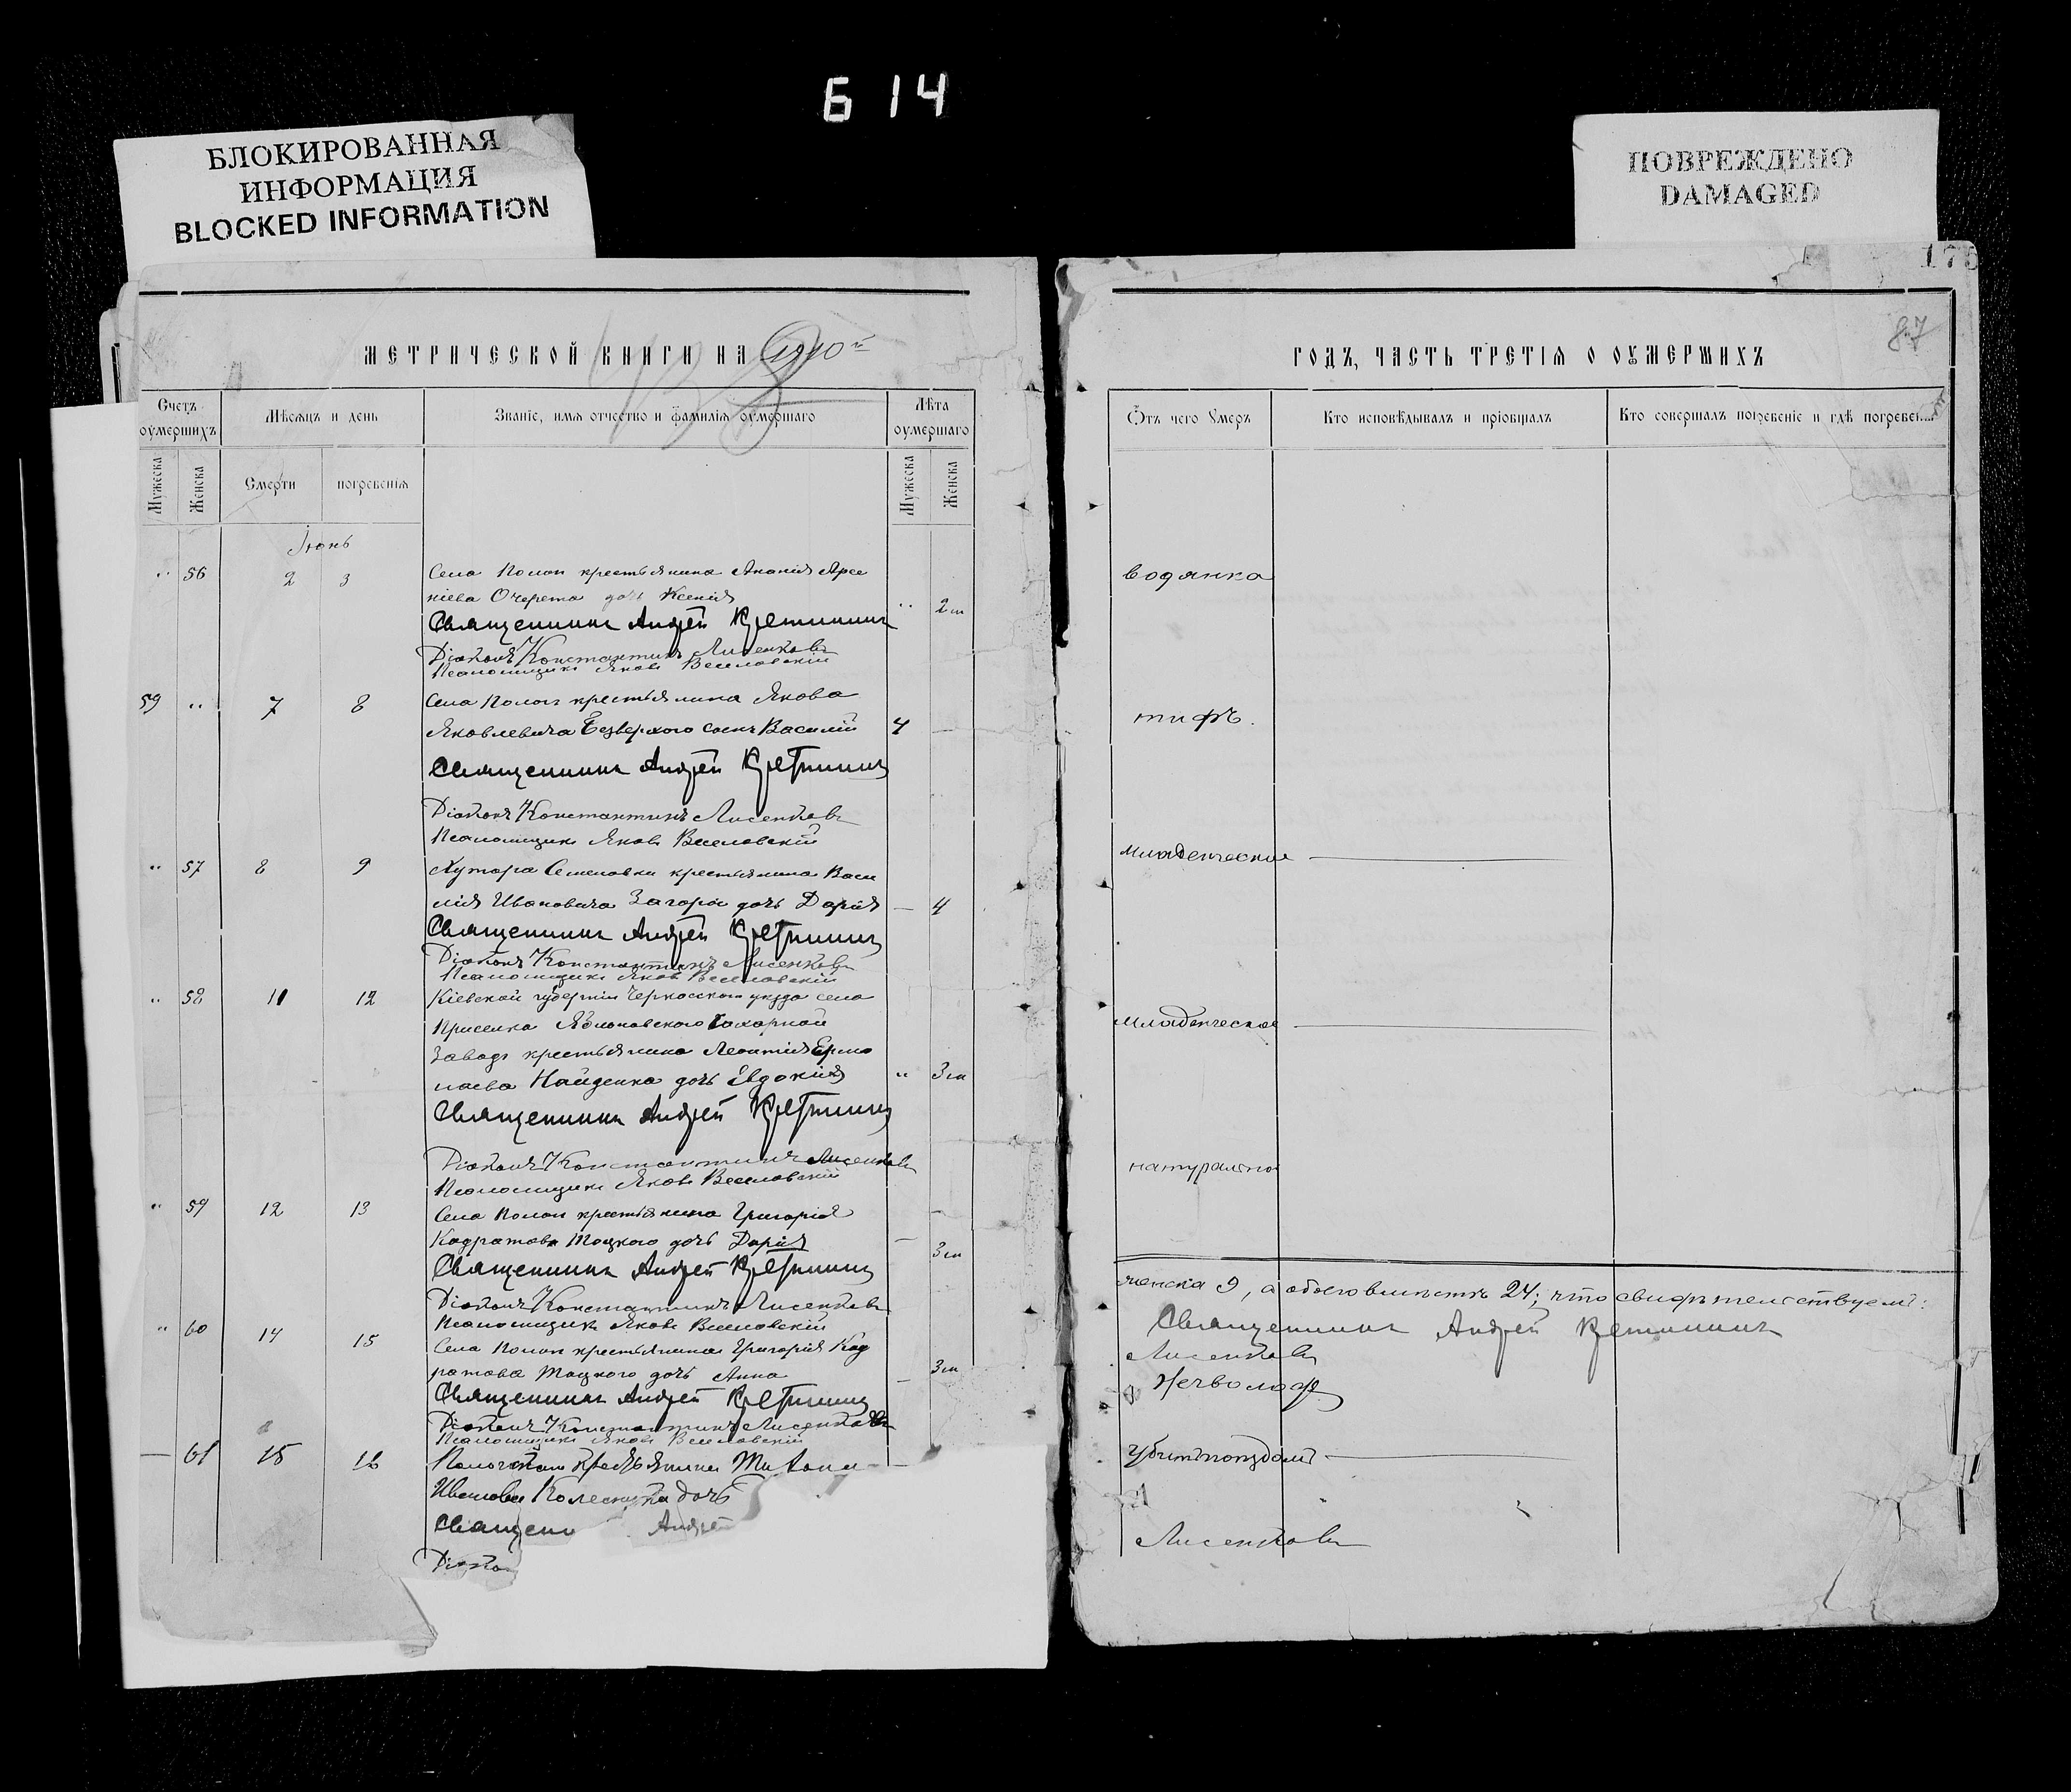 Б 14
БЛОКИРОВАННАЯ
ИНФОРМАЦИЯ
BLOCKED INFORMATION
ПОВРЕЖДЕНО
DAMAGED
МЕТРИЧЕСКОЙ КНИГИ НА 1910й
Счетъ оумершихъ
Мѣсяцъ и день
Званіе, имя отчество и фамилія оумершаго
Лѣта оумершаго
Мужеска
Женска
Смерти
погребенія
Мужеска
Женска
Іюнь
56 2 3 Села Полог крестьянина Анания Арсе
ніева Очерета дочь Ксенія 2 м
Священникъ Андрей Кретининъ
Діаконъ Константинъ Лисенковъ
Псаломщикъ Яковъ Веселовскій
59 7 8 Села Полог крестьянина Якова
Яковлевича Безверхого сынъ Василій 4
Священникъ Андрей Кретининъ
Діаконъ Константинъ Лисенковъ
Псаломщикъ Яковъ Веселовскій
57 8 9 Хутора Семеновки крестьянина Васи
лія Ивановича дочь Дарія — 4
Священникъ Андрей Кретининъ
Діаконъ Константинъ Лисенковъ
Псаломщикъ Яковъ Веселовскій
58 11 12 Кіевской губерніи Черкасского уезда села
Приселка Яблоновского Сахарной
Заводъ крестьянина Леонтія Ермо
лаева Найденка дочь Евдокія 3 м
Священникъ Андрей Кретининъ
Діаконъ Константинъ Лисенковъ
Псаломщикъ Яковъ Веселовскій
59 12 13 Села Полог крестьянина Григорія
Кодратова Тоцкого дочь Дарія — 3 м
Священникъ Андрей Кретининъ
Діаконъ Константинъ Лисенковъ
Псаломщикъ Яковъ Веселовскій
60 14 15 Села Полог крестьянина Григорія Код
ратова Тоцкого дочь Анна — 3 м
Священникъ Андрей Кретининъ
Діаконъ Константинъ Лисенковъ
Псаломщикъ Яковъ Веселовскій
— 61 15 16 крестьянина
Иванова Колесника дочь
Священн Андрей
Діако
87
ГОДЪ, ЧАСТЬ ТРЕТІЯ О ОУМЕРШИХЪ
Ѿтъ чего Умеръ
Кто исповѣдывалъ и пріобщалъ
Кто совершалъ погребеніе и гдѣ погребены
водянка
тифъ.
младенческие —
младенческое —
натурально
женска 9, а обоего вместѣ 24; что свидѣтельствуемъ:
Священникъ Андрей Кретининъ
Лисенковъ
Убит поездомъ —
Лисенковъ